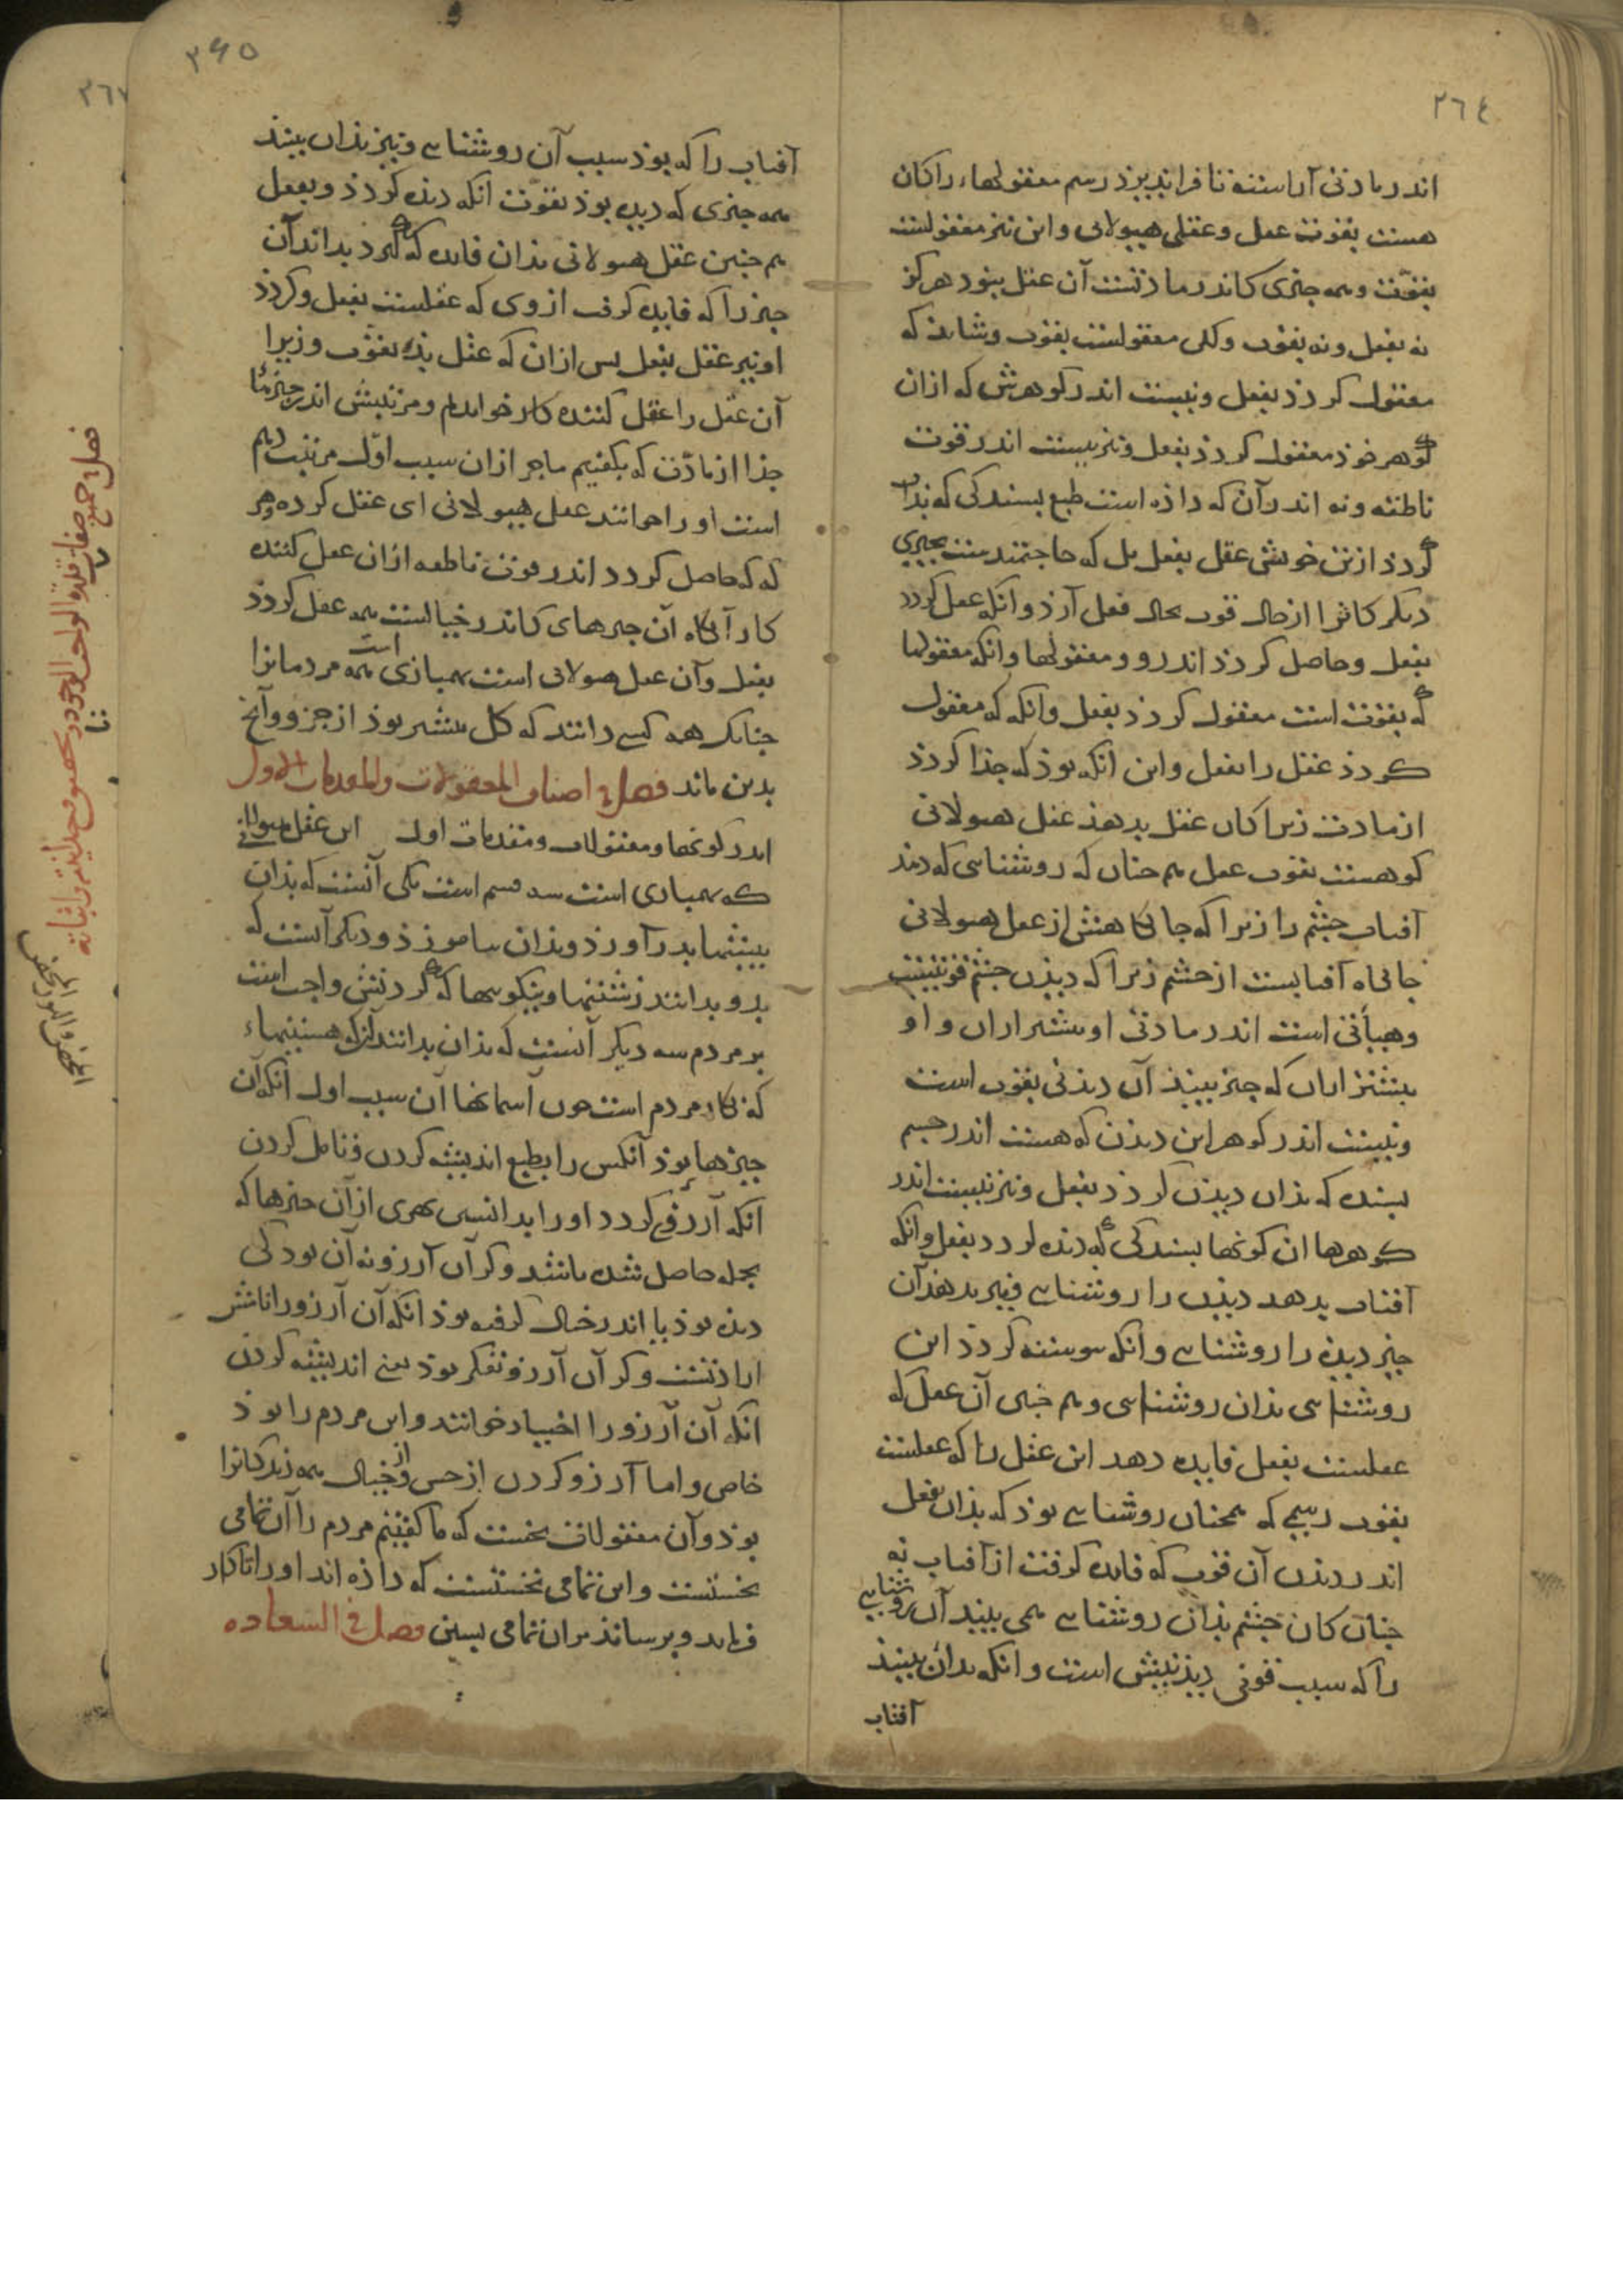 ٢٦٤
اندر مادتی آراسته تا فراپذیرذ رسم معقولها را کان
هست بقوت عقل و عقلی هیولانی و این نیز معقولست
بقوت و همه چیزی کاندر مادتست آن عقل بنود هرکز
نه بفعل و نه بقوت و لکن معقولست بقوت و شاید که
معقول کردذ بفعل و نیست اندر کوهرش که ازان
کوهر خوذ معقول کردذ بفعل و نیز نیست اندر قوت
ناطقه و نه اندر آن که داذه است طبع بسندکی که بذان
کردذ از تن خویش عقل بفعل بل که حاجتمندست بچیزی
دیکر کانرا از حال قوت بحال فعل آرذ و انکه عقل کردد
بفعل و حاصل کردذ اندرو و معقولها و انکه معقولها
که بقوت است معقول کردذ بفعل و انکه که معقول
کردذ عقل را بفعل و این انکه بوذ که جذا کردذ
از مادت زیرا کان عقل بدهذ عقل هیولانی
کو هست بقوت عقل هم چنان که روشناسی که دهد
آفتاب چشم را زیرا که جایکاهش از عقل هیولانی
جایکاه آفتابست از چشم زیرا که دیذن چشم قوتیست
و هیأتی است اندر مادتی او بیشتر ازان و او
بیشتر ازان که چیز بیند آن دیذنی بقوت است
و نیست اندر کوهر این دیذن که هست اندر جسم
بسنده که بذان دیذن کردذ بفعل و نیز نیست اندر
کوهرها ان کونها بسندکی که دیذه کردد بفعل و انکه
آفتاب بدهد دیذن را روشناسی و نیز بدهذ آن
چیز دیذه را روشناسی و انکه پیوسته کردد این
روشناسی بذان روشناسی و هم چنین آن عقل که
عقلیست بفعل فایده دهد این عقل را که عقلست
بقوت رسمی که همچنان روشناسی بوذ که بذان بفعل
اندر دیذن آن قوت که فایده کرفت از آفتاب نه
چنان کان چشم بذان روشناسی همی بیند آن روشناسی
را که سبب قوتی دیذنیش است و انکه بدان بیند
آفتاب
٣٦٥
آفتاب را که بوذ سبب آن روشناسی و نیز بذان بیند
همه چیزی که دیده بوذ بقوت انکه دیذه کردذ و بفعل
هم چنین عقل هیولانی بذان فایده که کیرد بداند آن
چیز را که فایده کرفت از وی که عقلست بفعل و کردذ
او نیز عقل بفعل پس ازان که عقل بذ بقوت و زیرا
آن عقل را عقل کننده کار خوانده‌ام و مرتبتش اندر چیزها
جذا از مادت که بکفتیم ماجر ازان سبب اول مرتبت دهم
است او را خوانند عقل هیولانی ای عقل کرده و هر
که که حاصل کردد اندر قوت ناطقه ازان عقل کننده
کار آنکاه آن چیزهای کاندر خیالست همه عقل کردذ
بفعل و آن عقل هیولانی است بهنبازی است همه مردمانرا
چنانک همه کسی دانند که کل بیشتر بوذ از جزو و آنچ
بدین ماند فصل فی اصناف المعقولات والمقدمات الاول
اندر کونها و معقولات و مقدمات اول این عقل هیولانی
که بهنبازی است سه قسم است یکی آنست که بذان
بیشتها بدر آورذ و بذان بیاموزذ و دیکر آنست که
بدو بدانند زشتیها و نیکویها که کردنش واجب است
بر مردم سه دیکر آنست که بذان بدانند آنکه هستیهاء
که نه کار مردم است چون آسمانها آن سبب اول انکه آن
چیزها بوذ آنکس را بطبع اندیشه کردن و تامل کردن
انکه آرزو کردد او را بدانستن بهری از آن چیزها که
بجمله حاصل شده باشد و کر آن آرزو نه آن بود کی
دیده بوذ یا اندر خیال کرفته بوذ انکه آن آرزو را نامش
ارادتست و کر آن آرزو تفکر بوذ یعنی اندیشه کردن
انکه آن آرزو را اختیار خوانند و این مردم را بوذ
خاص و اما آرزو کردن از حس و از خیال همه زندکانرا
بوذ و آن معقولات نخست که ما کفتیم مردم را آن تمامی
نخستست و این تمامی نخستست که داذه اند او را تا کار
فرماید و برساند بران تمامی پسین فصل فی السعاده
٣٦٧